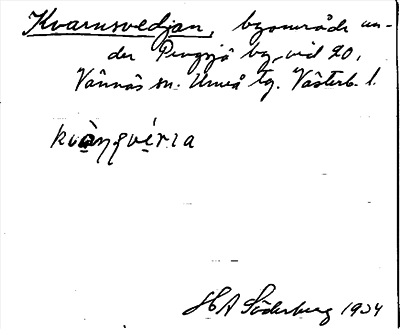 Kvarnsvedjan, byområde un-
der Pengsjö by, vid 20,
Vännäs sn. Umeå tg. Västerb. l.
kvàṇsvéria
HA Söderberg 1934